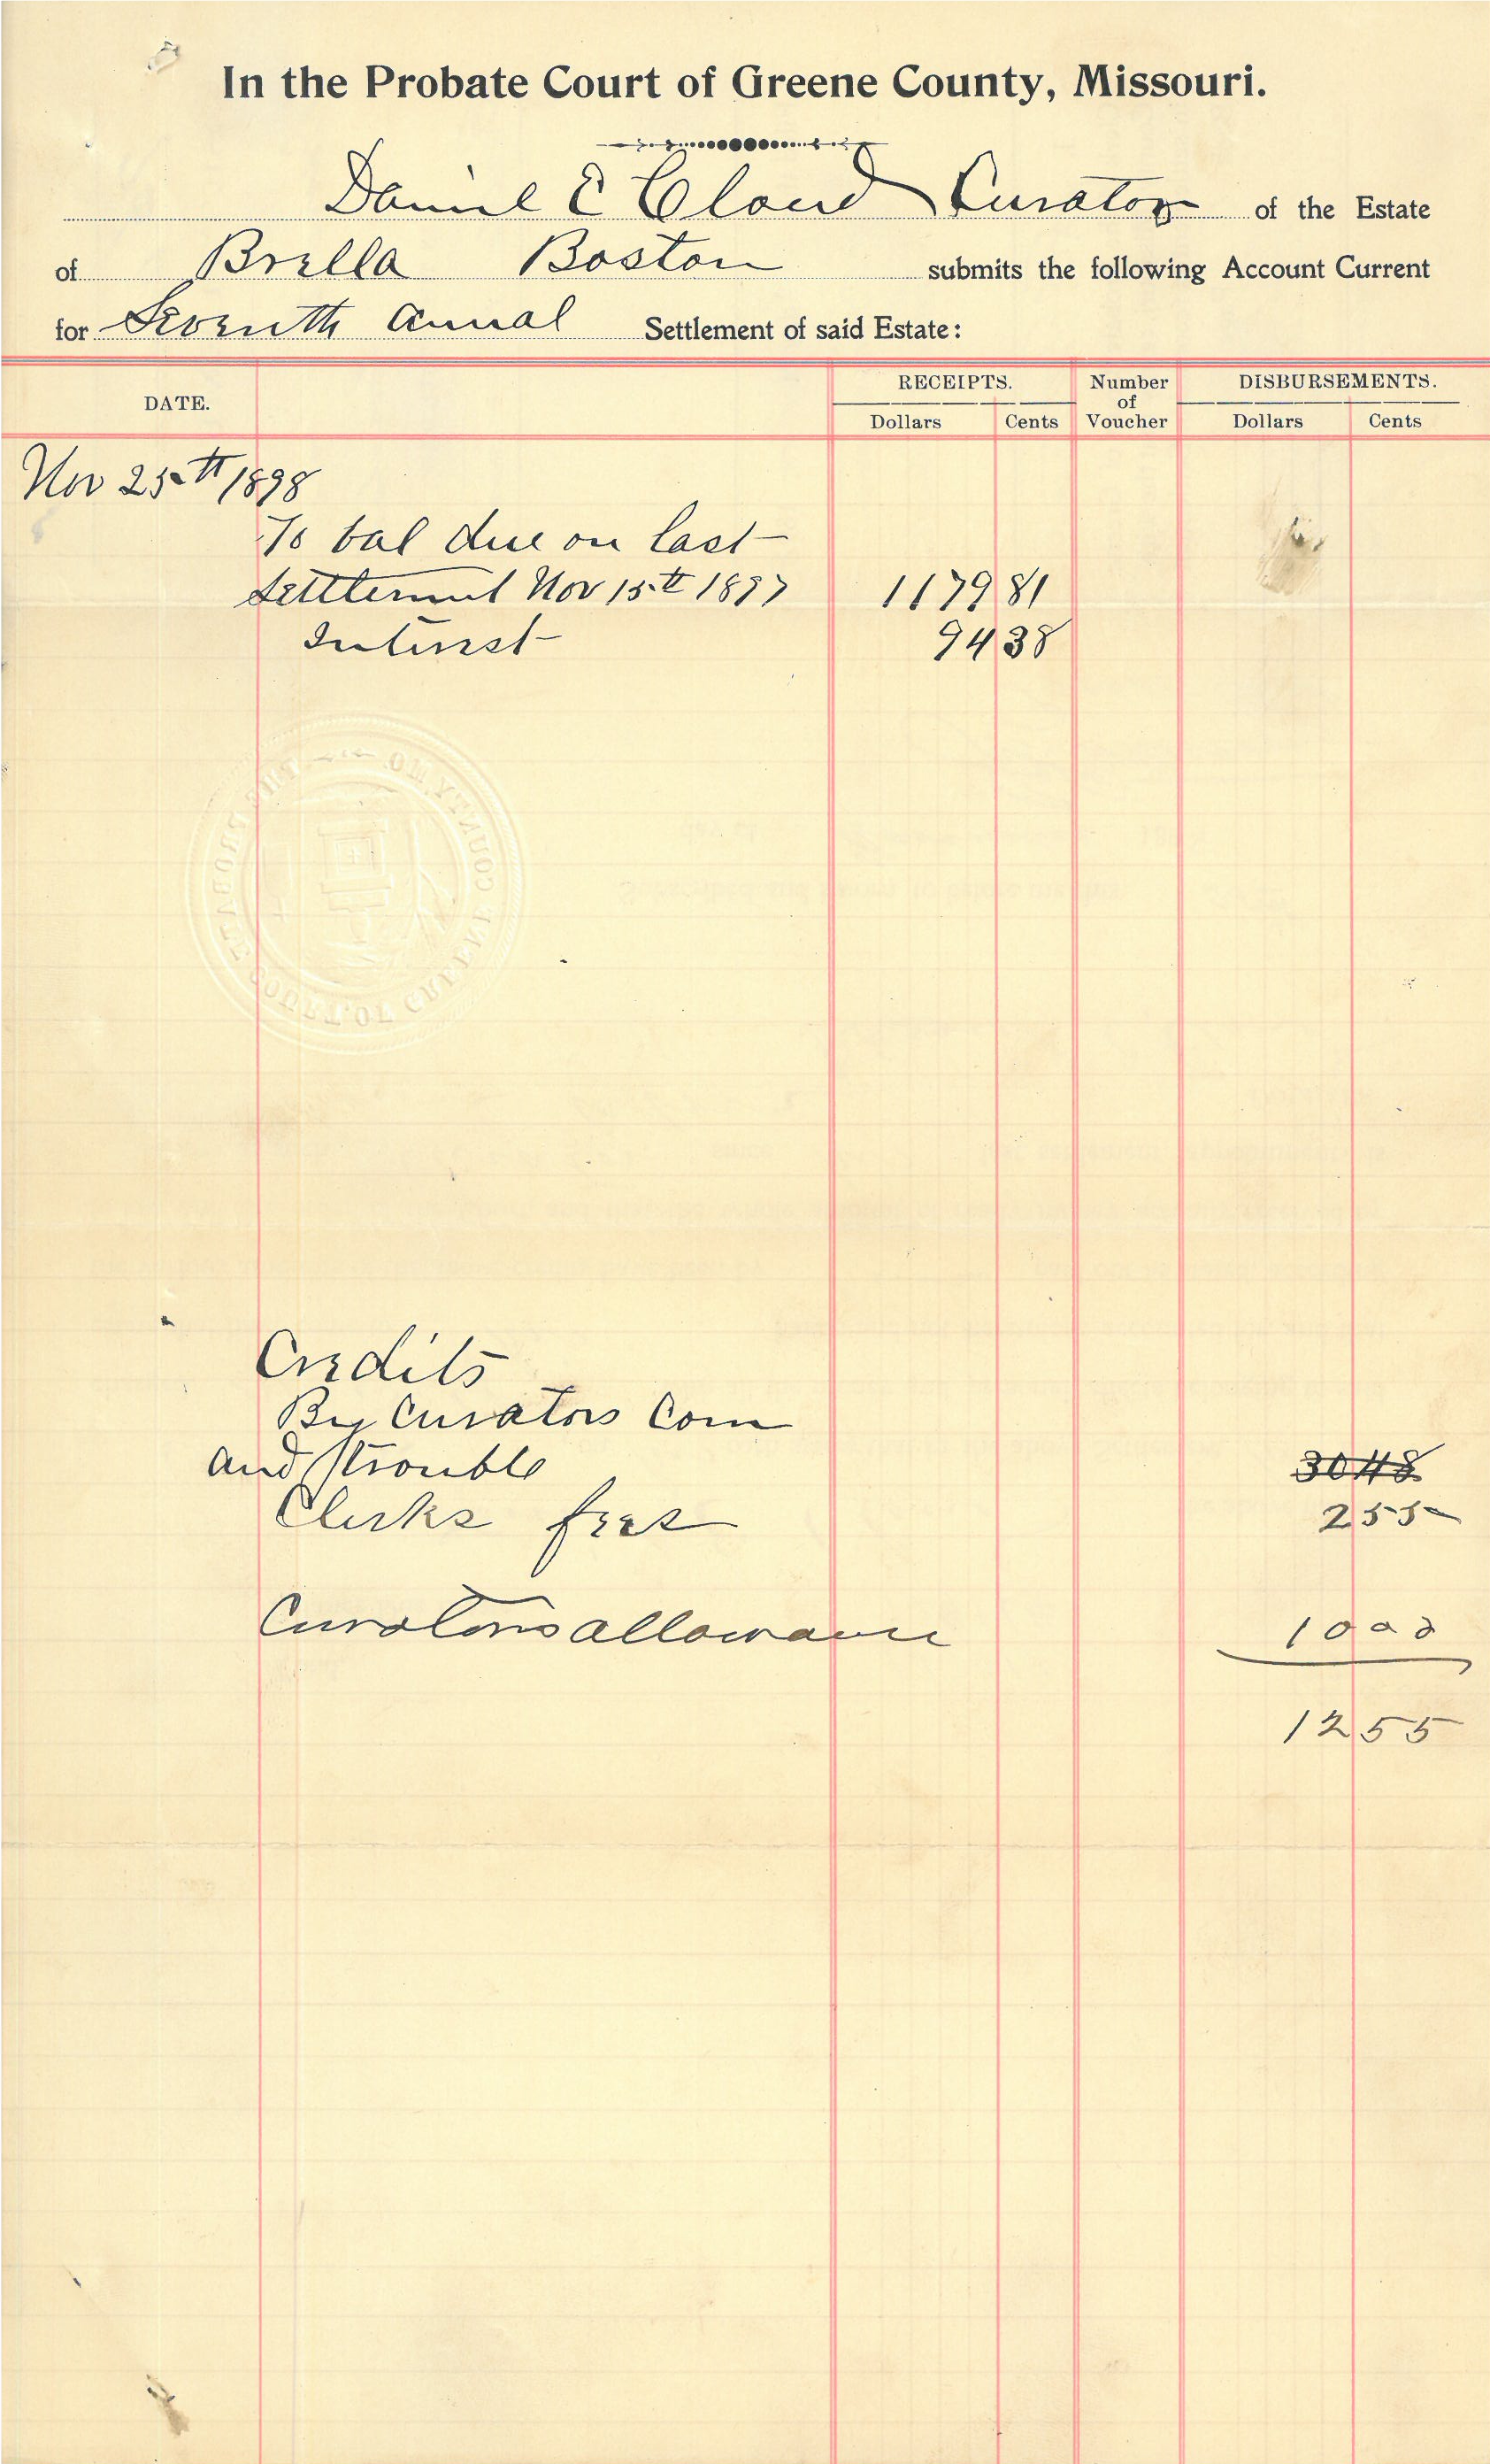 In the Probate Court of Greene County, Missouri.
Daniel E Cloud Curator of the Estate
of Brella Boston submits the following Account Current
for Seventh Annual Settlement of said Estate:
DATE. RECEIPTS. Number of Voucher DISBURSEMENTS.
Dollars Cents Dollars Cents
Nov 25th 1898
To bal due on last
Settlement Nov 15th 1897 1179 81
Interest 94 38
THE PROBATE COURT OF GREENE COUNTY MO
Credits
By Curators Com
and trouble 30 48
Clerks fees 2 55
Curators allowance 10 00
12 55